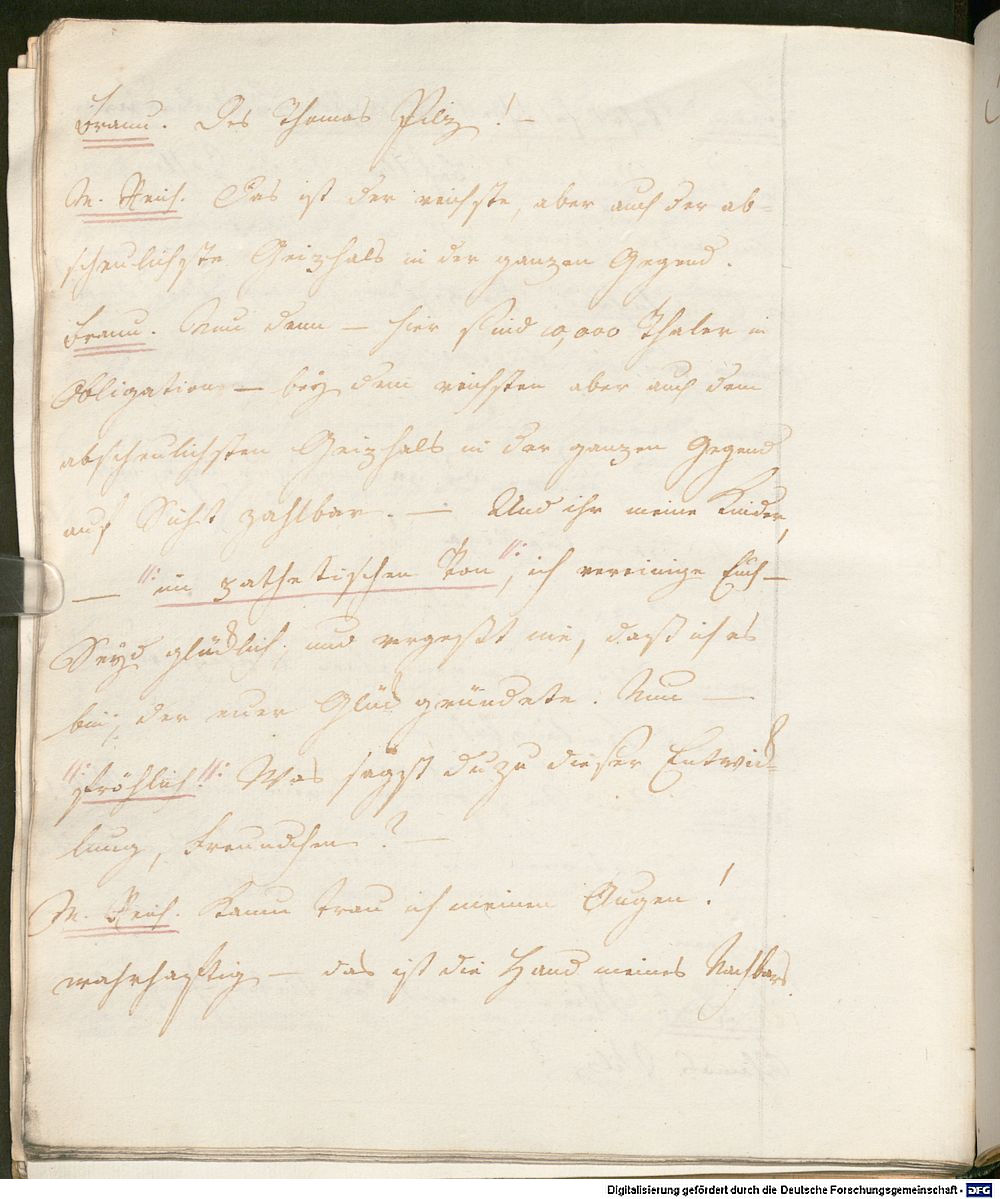 Brann. Des Thomas Pilz! –
M. Reich. Das ist der reichste, aber auch der ab=
scheulichste Geizhals in der ganzen Gegend.
Brann. Nun denn – hier sind 10,000 Thaler in
Obligation – bey dem reichsten aber auch dem
abscheulichsten Geizhals in der ganzen Gegend
auf Sicht zahlbar. – Und ihr meine Kinder,
– /: im pathetischen Ton :/, ich vereinige Euch –
Seyd glücklich, und vergeßt nie, daß ich es
bin, der euer Glück gründete. Nun –
/: fröhlich :/ Was sagst du zu dieser Entwick=
lung, Freundchen? –
M. Reich. Kaum trau ich meinen Augen!
wahrhaftig – das ist die Hand meines Nachbars
Digitalisierung gefördert durch die Deutsche Forschungsgemeinschaft - DFG